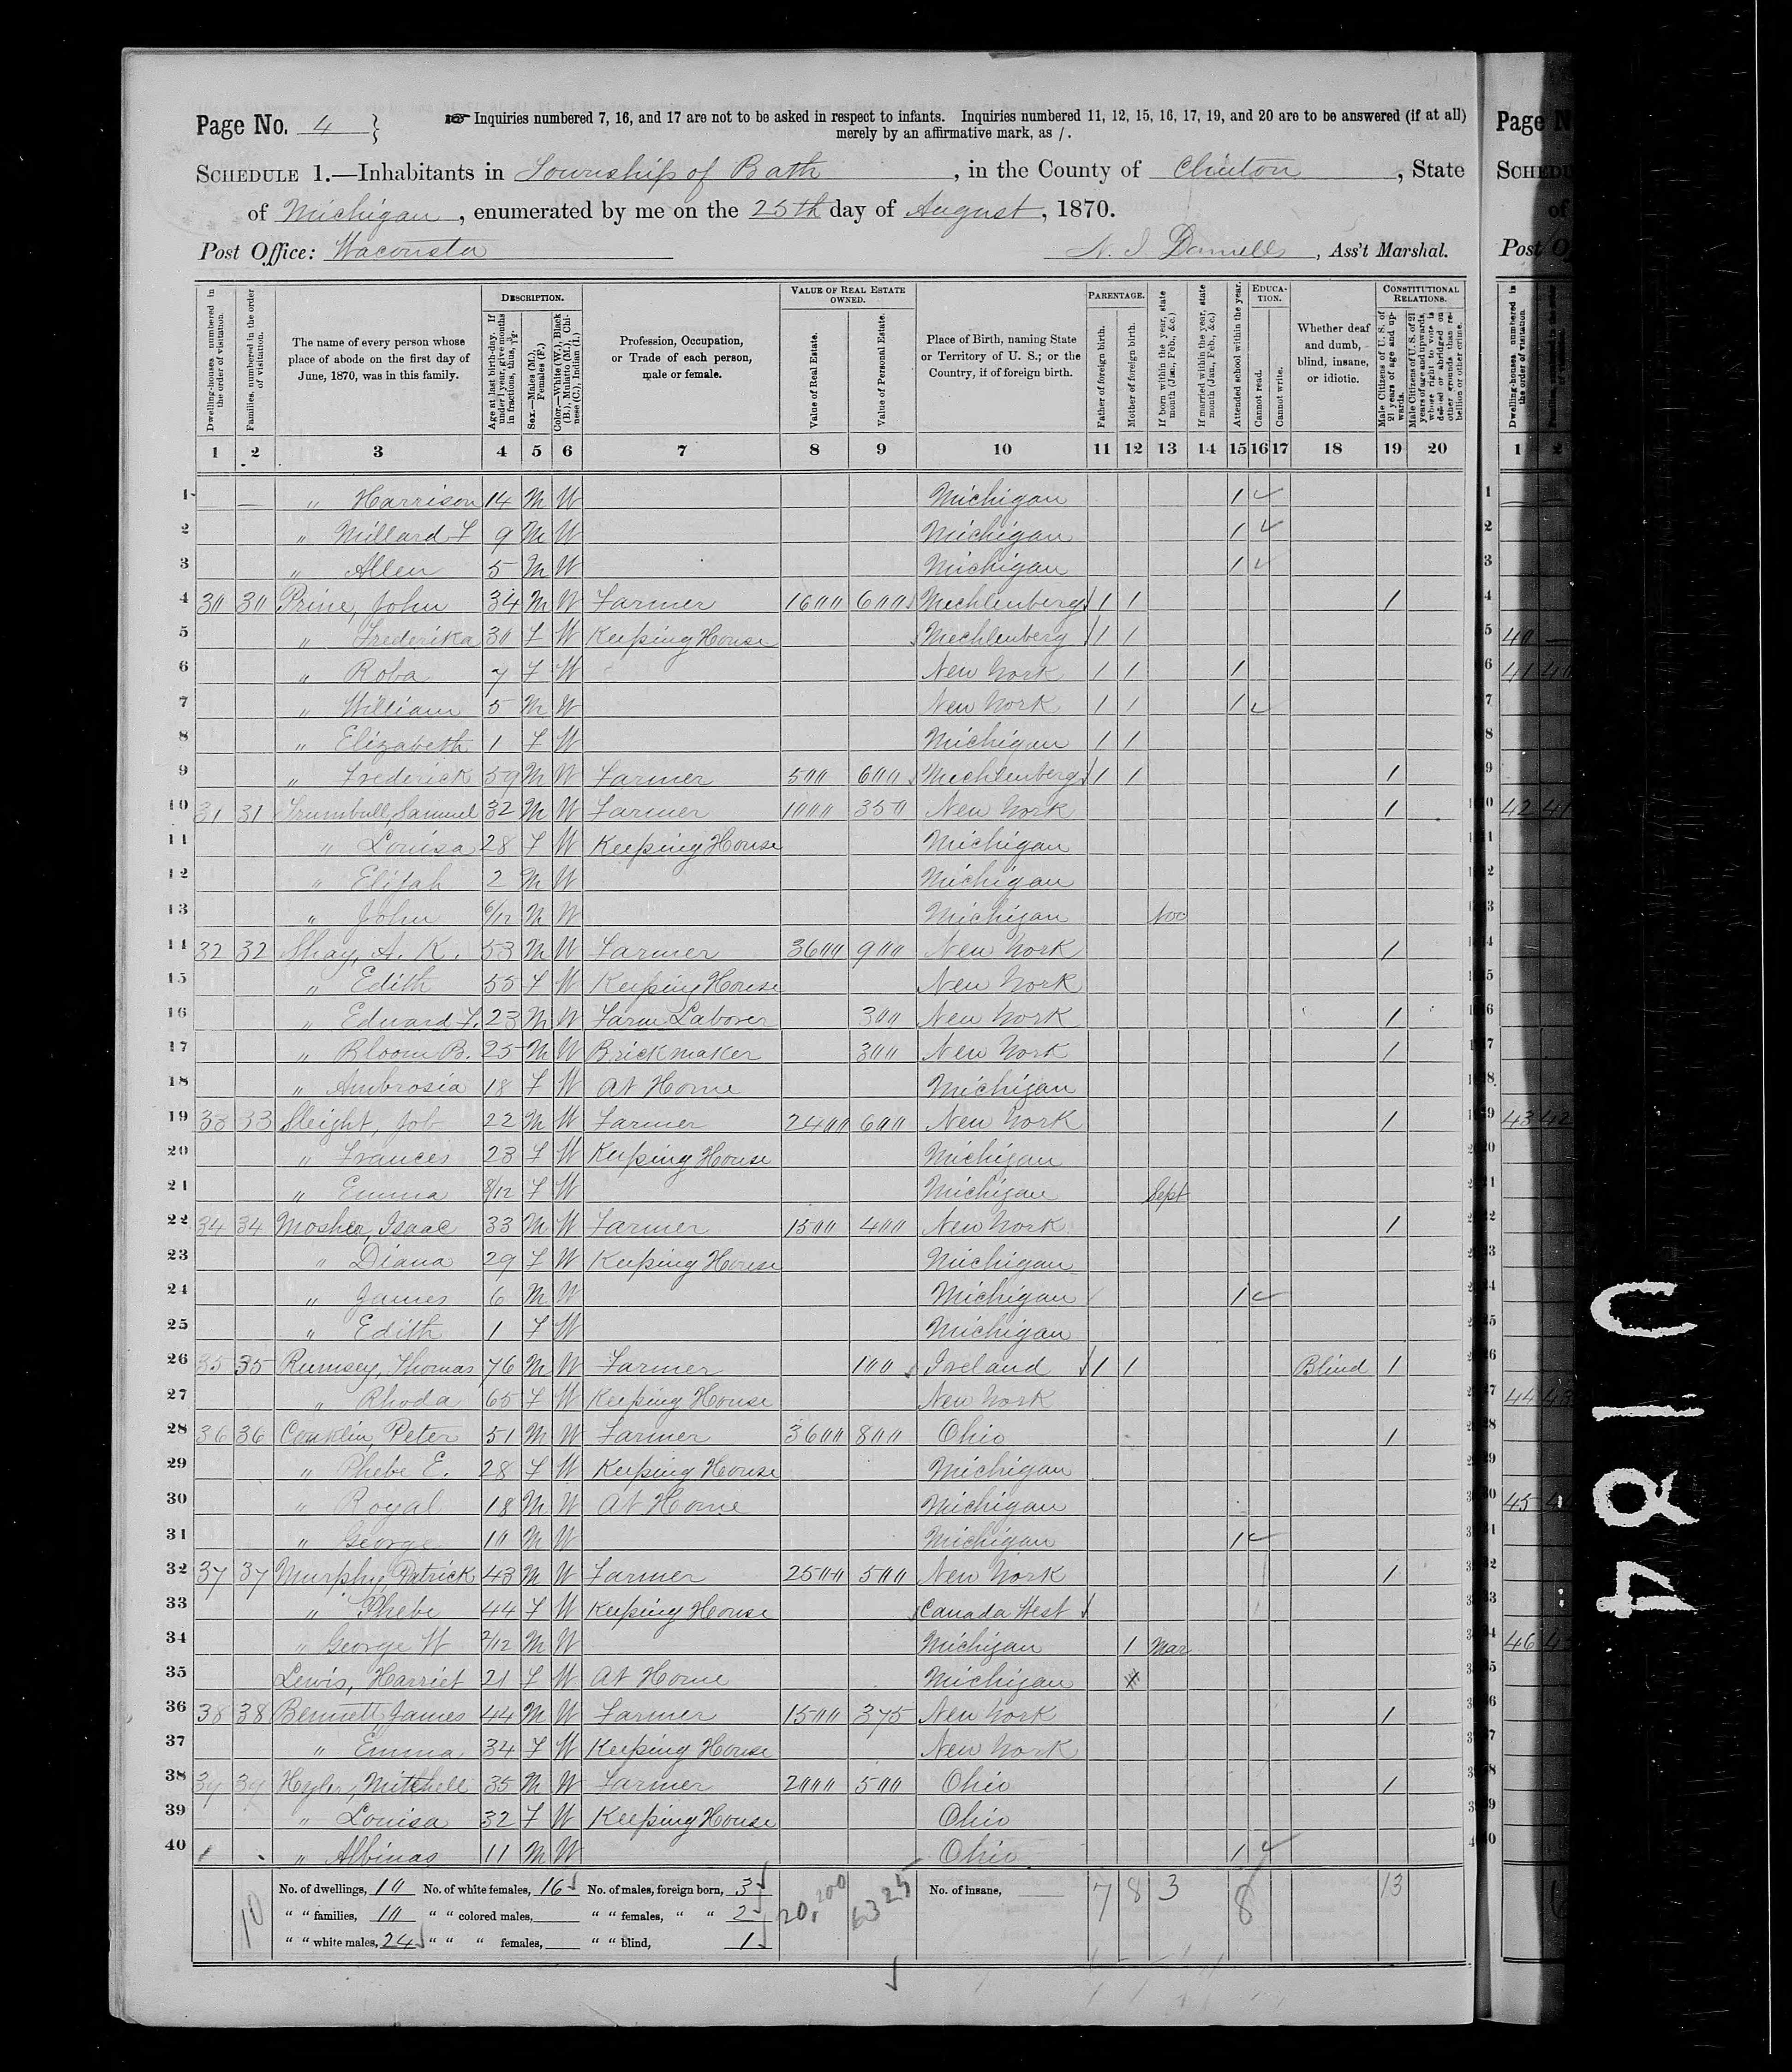 Page No. 4
Inquiries numbered 7, 16, and 17 are not to be asked in respect to infants. Inquiries numbered 11, 12, 15, 16, 17, 19, and 20 are to be answered (if at all)
merely by an affirmative mark, as /.
SCHEDULE 1.—Inhabitants in Township of Bath, in the County of Clinton, State
of Michigan, enumerated by me on the 25th day of August, 1870.
Post Office: Waconsta
, Ass't Marshal.
DESCRIPTION.
VALUE OF REAL ESTATE OWNED.
PARENTAGE.
EDUCATION.
CONSTITUTIONAL RELATIONS.
Dwelling-houses numbered in the order of visitation.
Families, numbered in the order of visitation.
The name of every person whose place of abode on the first day of June, 1870, was in this family.
Age at last birth-day. If under 1 year, give months in fractions, thus, 3/12.
Sex.—Males (M.), Females (F.)
Color.—White (W.), Black (B.), Mulatto (M.), Chinese (C.), Indian (I.)
Profession, Occupation, or Trade of each person, male or female.
Value of Real Estate.
Value of Personal Estate.
Place of Birth, naming State or Territory of U. S.; or the Country, if of foreign birth.
Father of foreign birth.
Mother of foreign birth.
If born within the year, state month (Jan., Feb., &c.)
If married within the year, state month (Jan., Feb., &c.)
Attended school within the year.
Cannot read.
Cannot write.
Whether deaf and dumb, blind, insane, or idiotic.
Male Citizens of U. S. of 21 years of age and upwards.
Male Citizens of U. S. of 21 years of age and upwards, whose right to vote is denied or abridged on other grounds than rebellion or other crime.
1 2 3 4 5 6 7 8 9 10 11 12 13 14 15 16 17 18 19 20
1 — " Harrison 14 M W Michigan 1 ✓
2 " Millard F 9 M W Michigan 1 ✓
3 " Allen 5 M W Michigan 1 ✓
4 30 30 Prine, John 34 M W Farmer 1600 600 Mechlenberg 1 1 1
5 " Frederika 30 F W Keeping House Mechlenberg 1 1
6 " Roba 7 F W New York 1 1 1
7 " William 5 M W New York 1 1 1 ✓
8 " Elizabeth 1 F W Michigan 1 1
9 " Frederick 59 M W Farmer 500 600 Mechlenberg 1 1 1
10 31 31 Trumbull, Samuel 32 M W Farmer 1000 350 New York 1
11 " Louisa 28 F W Keeping House Michigan
12 " Elijah 2 M W Michigan
13 " John 6/12 M W Michigan Nov
14 32 32 Shay, A. K. 53 M W Farmer 3600 900 New York 1
15 " Edith 55 F W Keeping House New York
16 " Edward F. 23 M W Farm Laborer 300 New York 1
17 " Bloom B. 25 M W Brickmaker 300 New York 1
18 " Ambrosia 18 F W At Home Michigan
19 33 33 Sleight, Job 22 M W Farmer 2400 600 New York 1
20 " Frances 23 F W Keeping House Michigan
21 " Emma 8/12 F W Michigan Sept
22 34 34 Mosher, Isaac 33 M W Farmer 1500 400 New York 1
23 " Diana 29 F W Keeping House Michigan
24 " James 6 M W Michigan 1 ✓
25 " Edith 1 F W Michigan
26 35 35 Rumsey, Thomas 76 M W Farmer 100 Ireland 1 1 Blind 1
27 " Rhoda 65 F W Keeping House New York
28 36 36 Conklin, Peter 51 M W Farmer 3600 800 Ohio 1
29 " Phebe E. 28 F W Keeping House Michigan
30 " Royal 18 M W At Home Michigan
31 " George 10 M W Michigan 1 ✓
32 37 37 Murphy, Patrick 43 M W Farmer 2500 500 New York 1
33 " Phebe 44 F W Keeping House Canada West
34 " George W 2/12 M W Michigan 1 Mar
35 Lewis, Harriet 21 F W At Home Michigan
36 38 38 Bennett, James 44 M W Farmer 1500 375 New York 1
37 " Emma 34 F W Keeping House New York
38 39 39 Hyler, Mitchell 35 M W Farmer 2000 500 Ohio 1
39 " Louisa 32 F W Keeping House Ohio
40 " Albinas 11 M W Ohio 1 ✓
No. of dwellings, 10 No. of white females, 16 No. of males, foreign born, 3 20,200 6325 No. of insane, 7 8 3 8 13
" " families, 10 " " colored males, " " females, " " 2
" " white males, 24 " " " females, " " blind, 1
10
0184